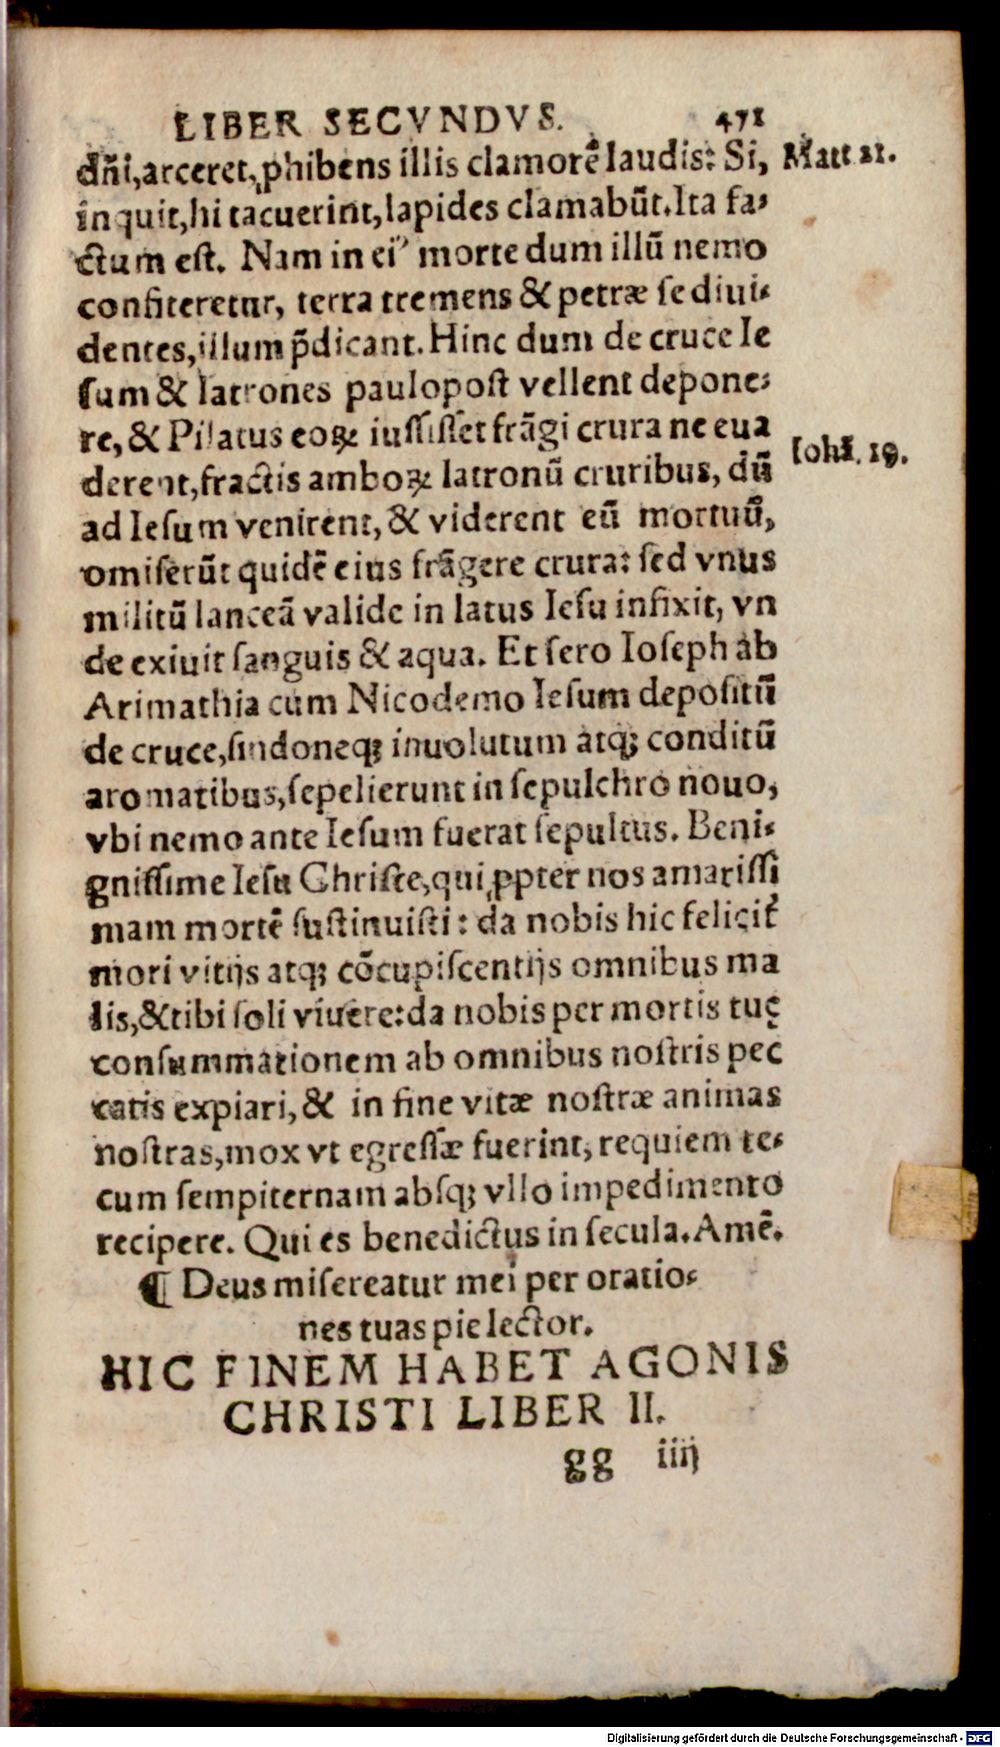 LIBER SECVNDVS. 471
dn̄i,arceret,ꝓhibens illis clamorē laudis: Si, Matt 21.
inquit,hi tacuerint,lapides clamabūt.Ita fa-
ctum eſt. Nam in eiꝰ morte dum illū nemo
confiteretur, terra tremens & petræ ſe diui-
dentes,illum p̄dicant. Hinc dum de cruce Ie
ſum & latrones paulopoſt vellent depone-
re, & Pilatus eoꝝ iuſſiſſet frāgi crura ne eua
derent,fractis amboꝝ latronū cruribus, dū Iohā. 19.
ad Ieſum venirent, & viderent eū mortuū,
omiſerūt quidē eius frāgere crura: ſed vnus
militū lanceā valide in latus Ieſu infixit, vn
de exiuit ſanguis & aqua. Et ſero Ioſeph ab
Arimathia cum Nicodemo Ieſum depoſitū
de cruce,ſindoneqꝫ inuolutum atqꝫ conditū
aromatibus,ſepelierunt in ſepulchro nouo,
vbi nemo ante Ieſum fuerat ſepultus. Beni-
gniſſime Ieſu Chriſte,qui ꝓpter nos amariſſi
mam mortē ſuſtinuiſti: da nobis hic felicit̉
mori vitijs atqꝫ cōcupiſcentijs omnibus ma
lis,&tibi ſoli viuere:da nobis per mortis tuę
conſummationem ab omnibus noſtris pec
catis expiari, & in fine vitæ noſtræ animas
noſtras,mox vt egreſſæ fuerint, requiem te-
cum ſempiternam abſqꝫ vllo impedimento
recipere. Qui es benedictus in ſecula. Amē.
¶ Deus miſereatur mei per oratio-
nes tuas pie lector.
HIC FINEM HABET AGONIS
CHRISTI LIBER II.
gg iiij
Digitalisierung gefördert durch die Deutsche Forschungsgemeinschaft - DFG